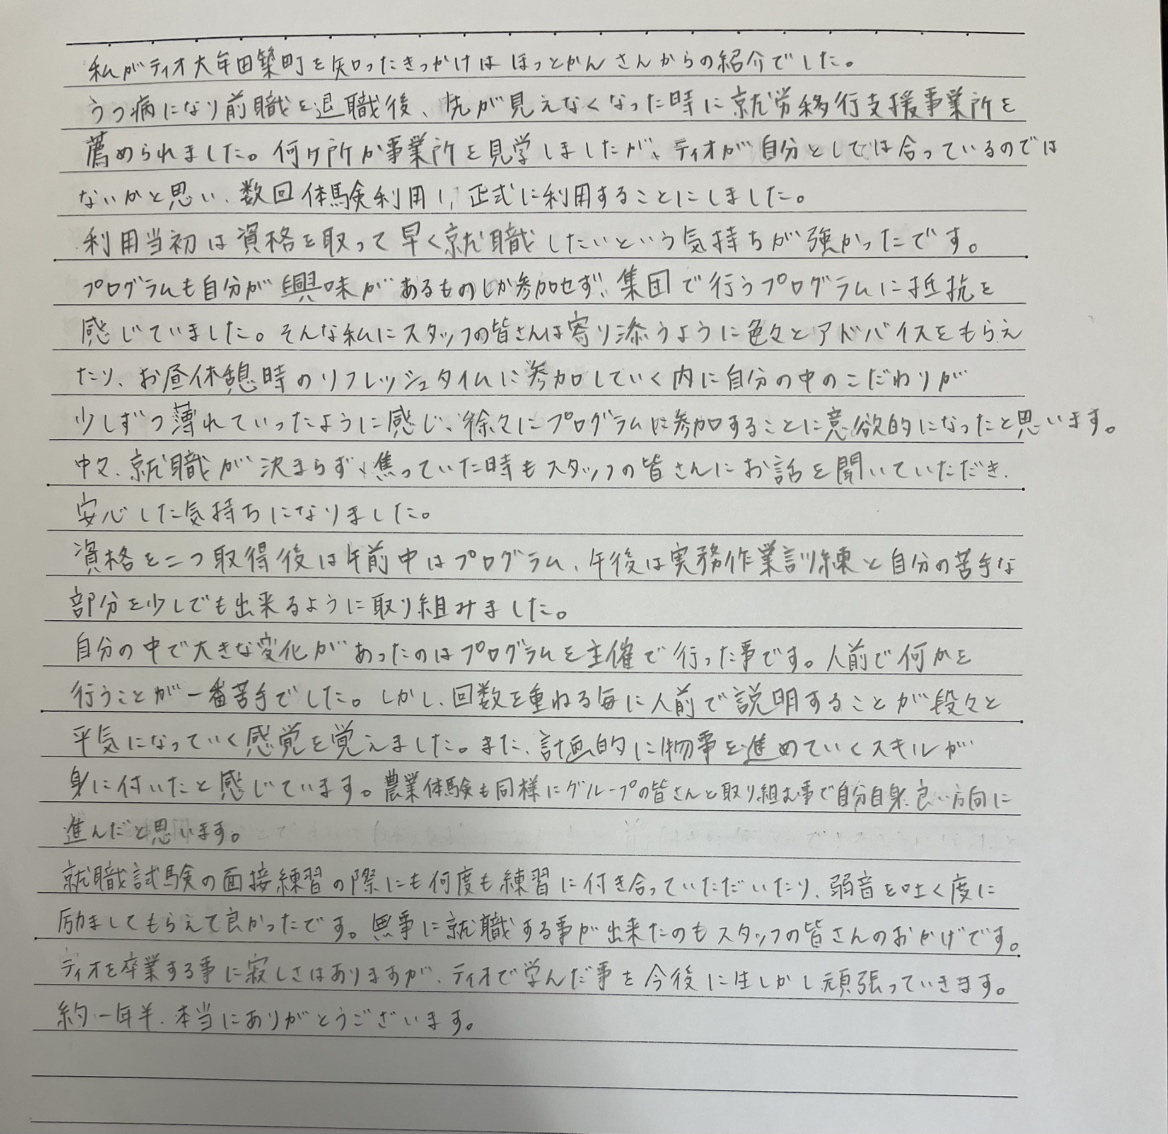 私がティオ大牟田築町を知ったきっかけはほっとかんさんからの紹介でした。
うつ病になり前職を退職後、先が見えなくなった時に就労移行支援事業所を
薦められました。何ヶ所か事業所を見学しましたが、ティオが自分としては合っているのでは
ないかと思い、数回体験利用し、正式に利用することにしました。
利用当初は資格を取って早く就職したいという気持ちが強かったです。
プログラムも自分が興味があるものしか参加せず、集団で行うプログラムに抵抗を
感じていました。そんな私にスタッフの皆さんは寄り添うように色々とアドバイスをもらえ
たり、お昼休憩時のリフレッシュタイムに参加していく内に自分の中のこだわりが
少しずつ薄れていったように感じ、徐々にプログラムに参加することに意欲的になったと思います。
中々、就職が決まらず、焦っていた時もスタッフの皆さんにお話を聞いていただき、
安心した気持ちになりました。
資格を二つ取得後は午前中はプログラム、午後は実務作業訓練と自分の苦手な
部分を少しでも出来るように取り組みました。
自分の中で大きな変化があったのはプログラムを主催で行った事です。人前で何かを
行うことが一番苦手でした。しかし、回数を重ねる毎に人前で説明することが段々と
平気になっていく感覚を覚えました。また、計画的に物事を進めていくスキルが
身に付いたと感じています。農業体験も同様にグループの皆さんと取り組む事で自分自身、良い方向に
進んだと思います。
就職試験の面接練習の際にも何度も練習に付き合っていただいたり、弱音を吐く度に
励ましてもらえて良かったです。無事に就職する事が出来たのもスタッフの皆さんのおかげです。
ティオを卒業する事に寂しさはありますが、ティオで学んだ事を今後に生しかし頑張っていきます。
約一年半、本当にありがとうございます。